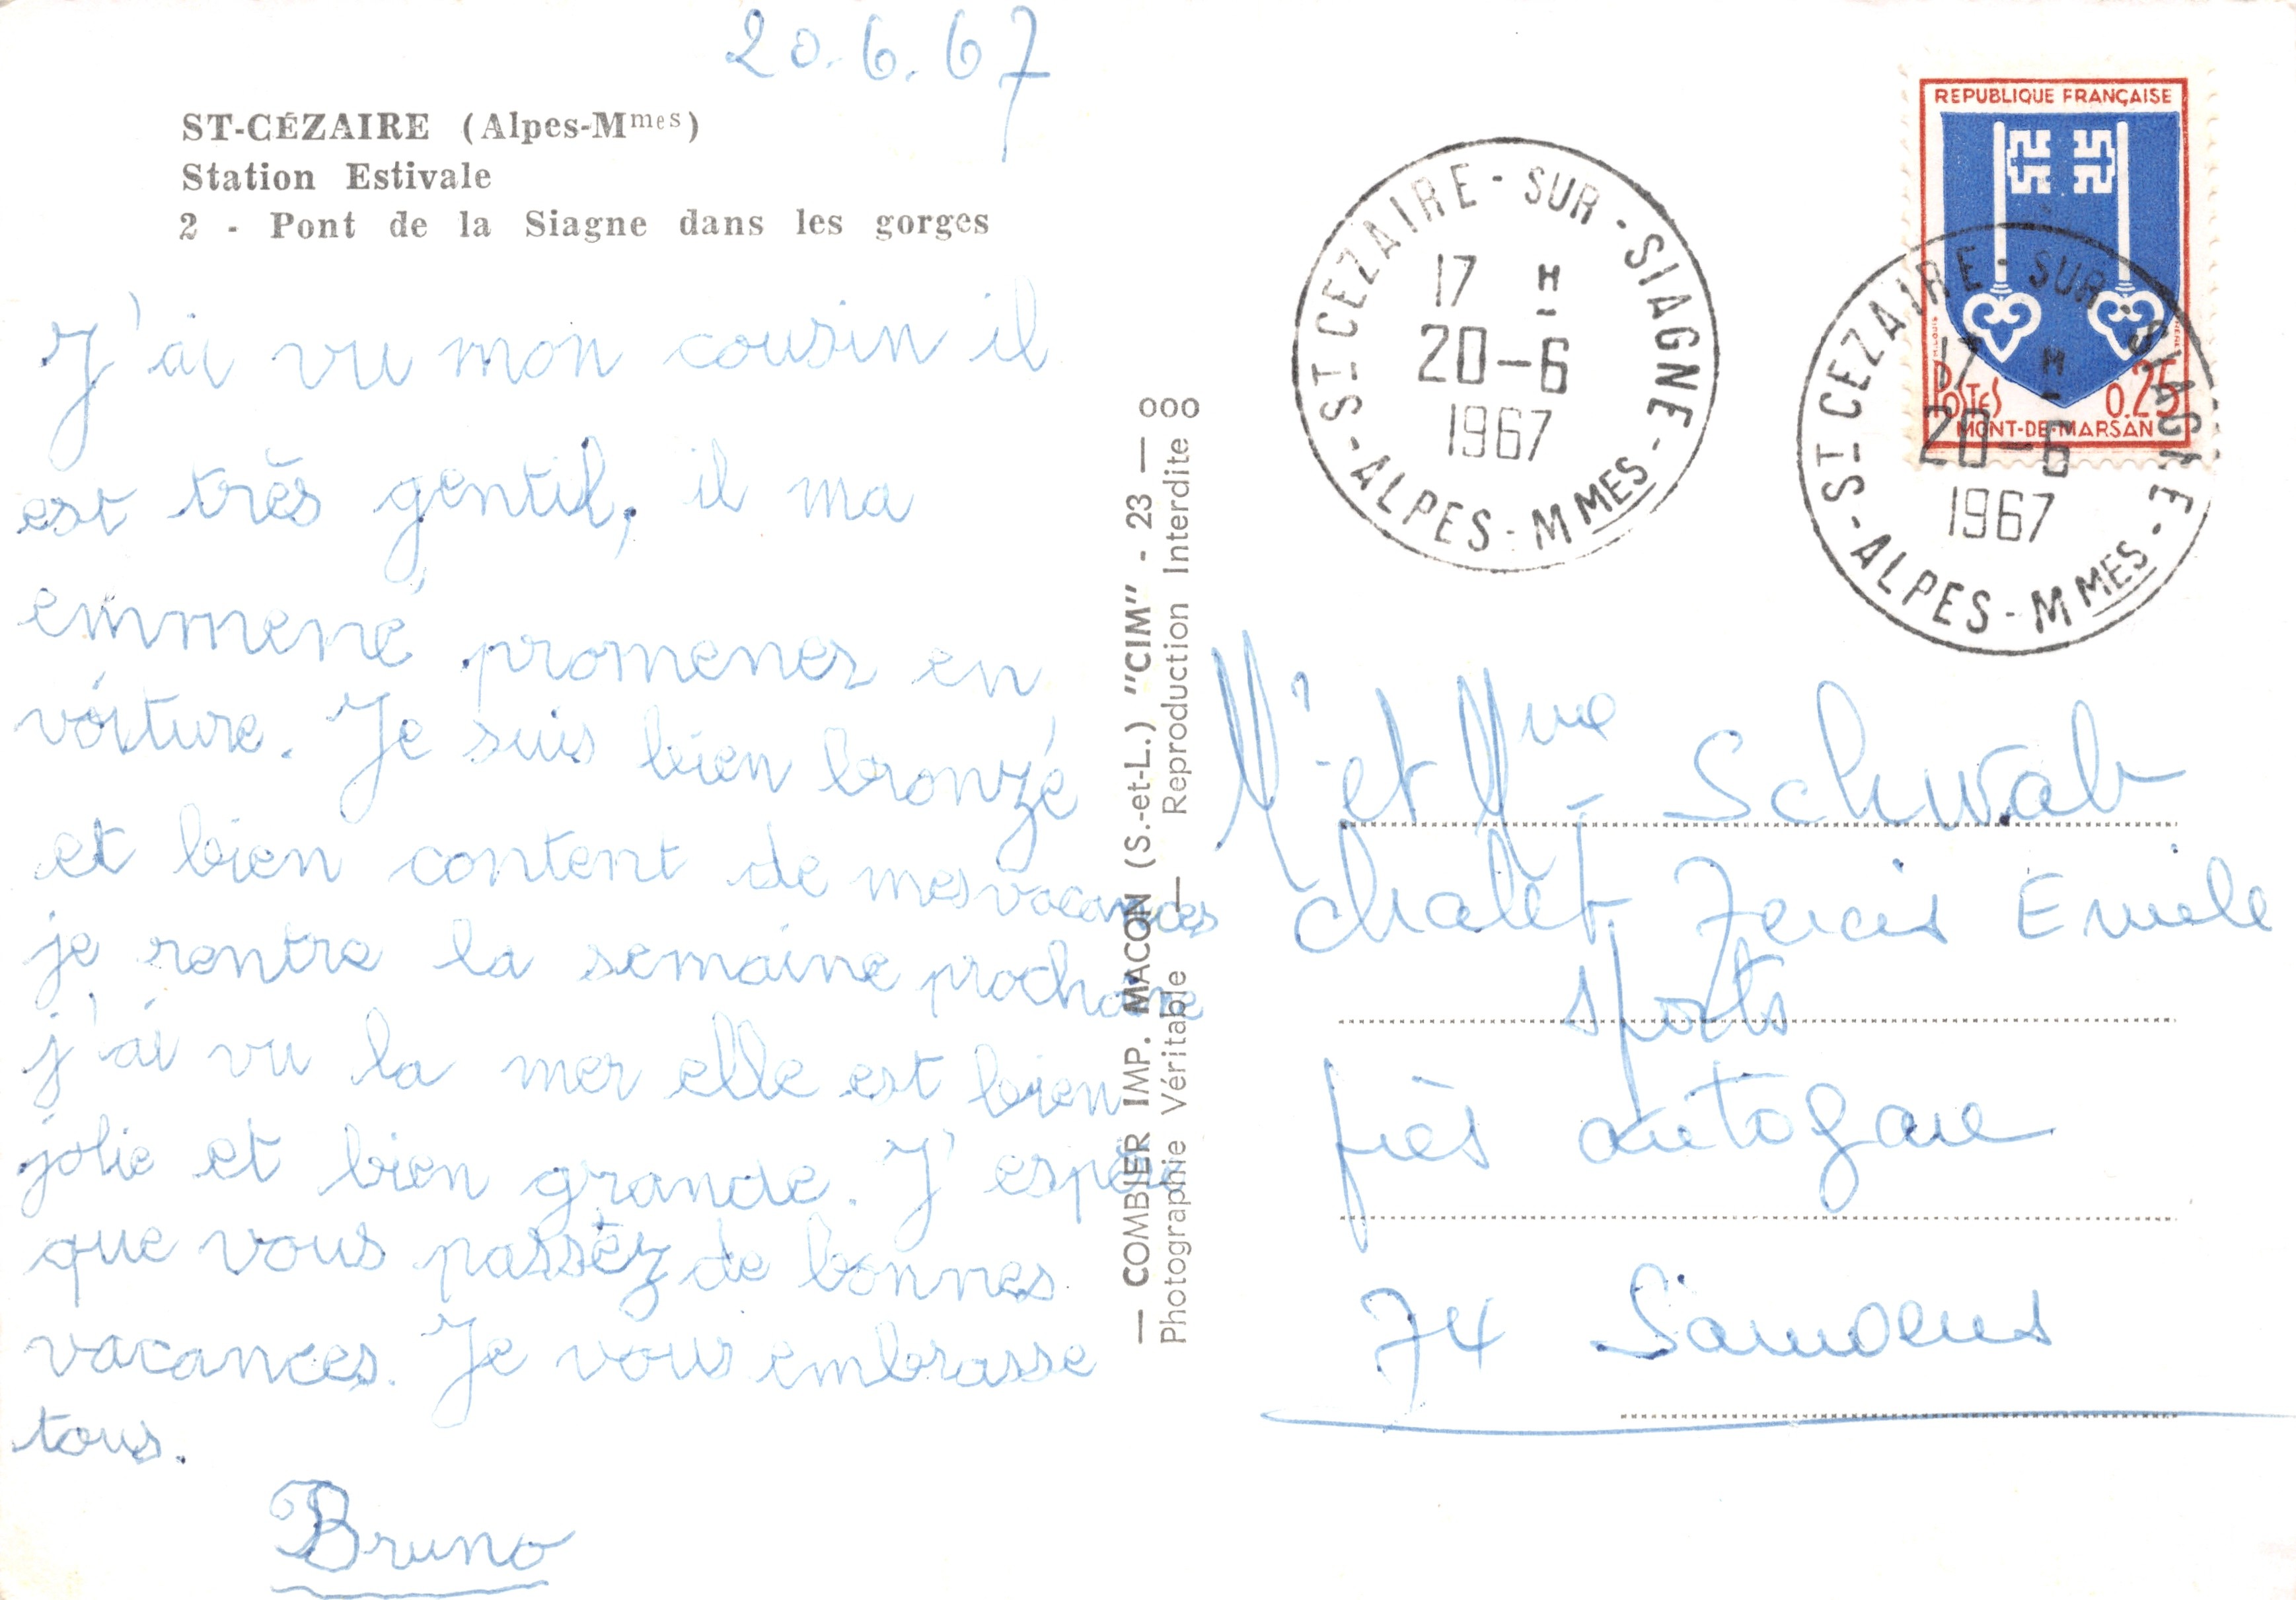 20.6.67
ST-CÉZAIRE (Alpes-Mmes)
Station Estivale
2 - Pont de la Siagne dans les gorges
J'ai vu mon cousin il
est très gentil, il ma
emmené promener en
voiture. Je suis bien bronzé
et bien content de mes vacances
je rentre la semaine prochaine
j'ai vu la mer elle est bien
jolie et bien grande. J'espère
que vous passez de bonnes
vacances. Je vous embrasse
tous.
Bruno
— COMBIER IMP. MACON (S.-et-L.) "CIM" - 23 —
Photographie Véritable — Reproduction Interdite
000
ST CEZAIRE-SUR-SIAGNE
17 H
20-6
1967
-ALPES-MMES-
REPUBLIQUE FRANÇAISE
POSTES
0.25
MONT-DE-MARSAN
ST CEZAIRE-SUR-SIAGNE
17 H
20-6
1967
-ALPES-MMES-
Mr et Mme Schwab
chalet Emile
sports
près autogare
74 Samoens